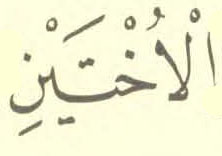 الْاُخْتَيْنِ